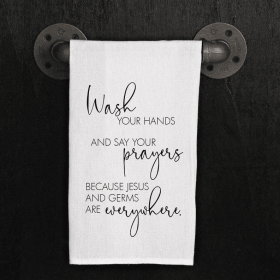 Wash
YOUR HANDS
AND SAY YOUR
prayers
BECAUSE JESUS
AND GERMS
ARE everywhere.